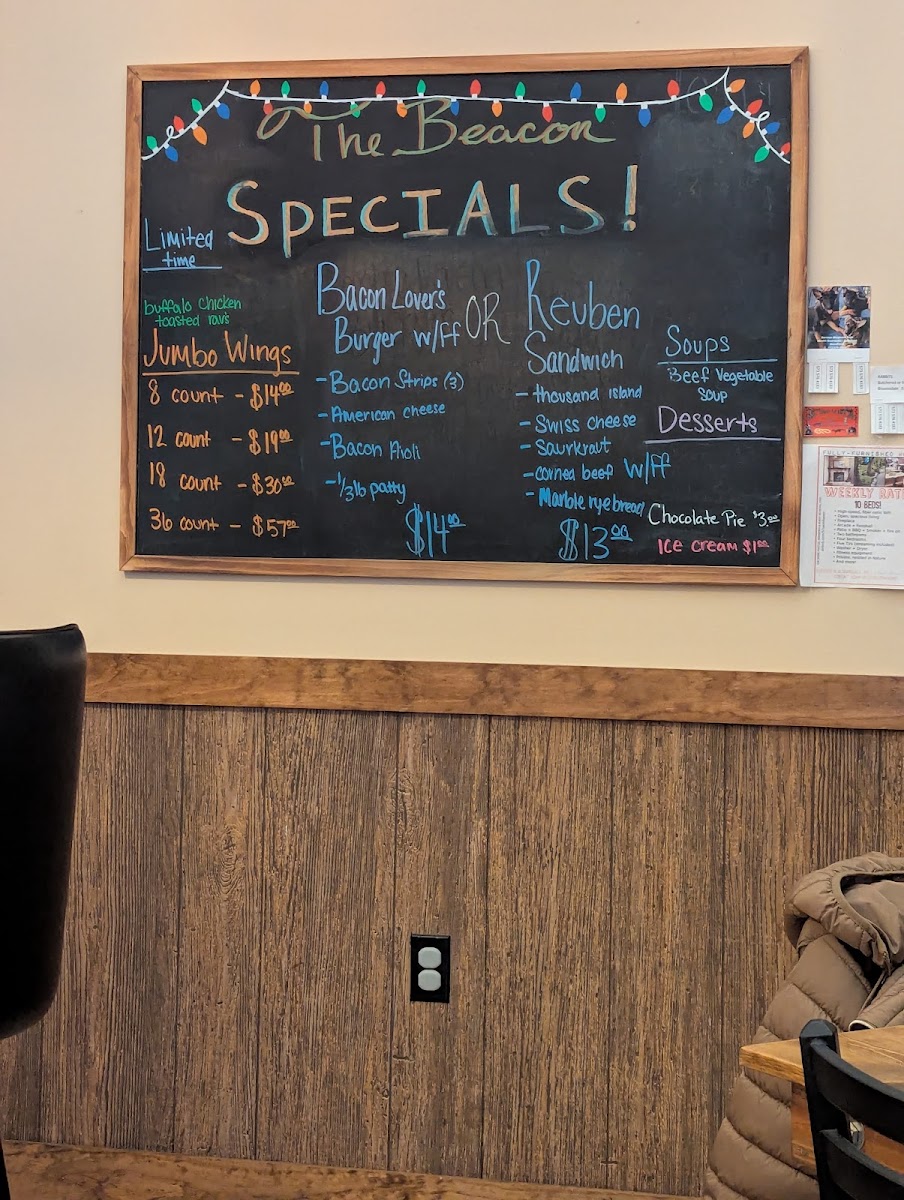 The Beacon
SPECIALS!
Limited
time
buffalo chicken
toasted rav's
Jumbo Wings
8 count - $14.00
12 count - $19.00
18 count - $30.00
36 count - $57.00
Bacon Lover's
Burger w/ff
- Bacon Strips (3)
- American cheese
- Bacon Aioli
- 1/3 lb patty
$14.00
OR
Reuben
Sandwich
- thousand island
- Swiss cheese
- Saurkraut
- corned beef w/ff
- Marble rye bread
$13.00
Soups
Beef Vegetable
soup
Desserts
Chocolate Pie $3.00
Ice cream $1.00
WEEKLY RAT
10 BEDS!